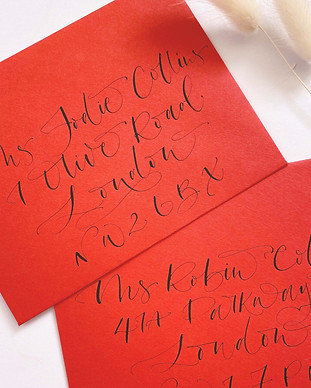 Ms Jodie Collins
1 Olive Road
London
NW2 6BX
Ms Robin Co
41a Parkway
London